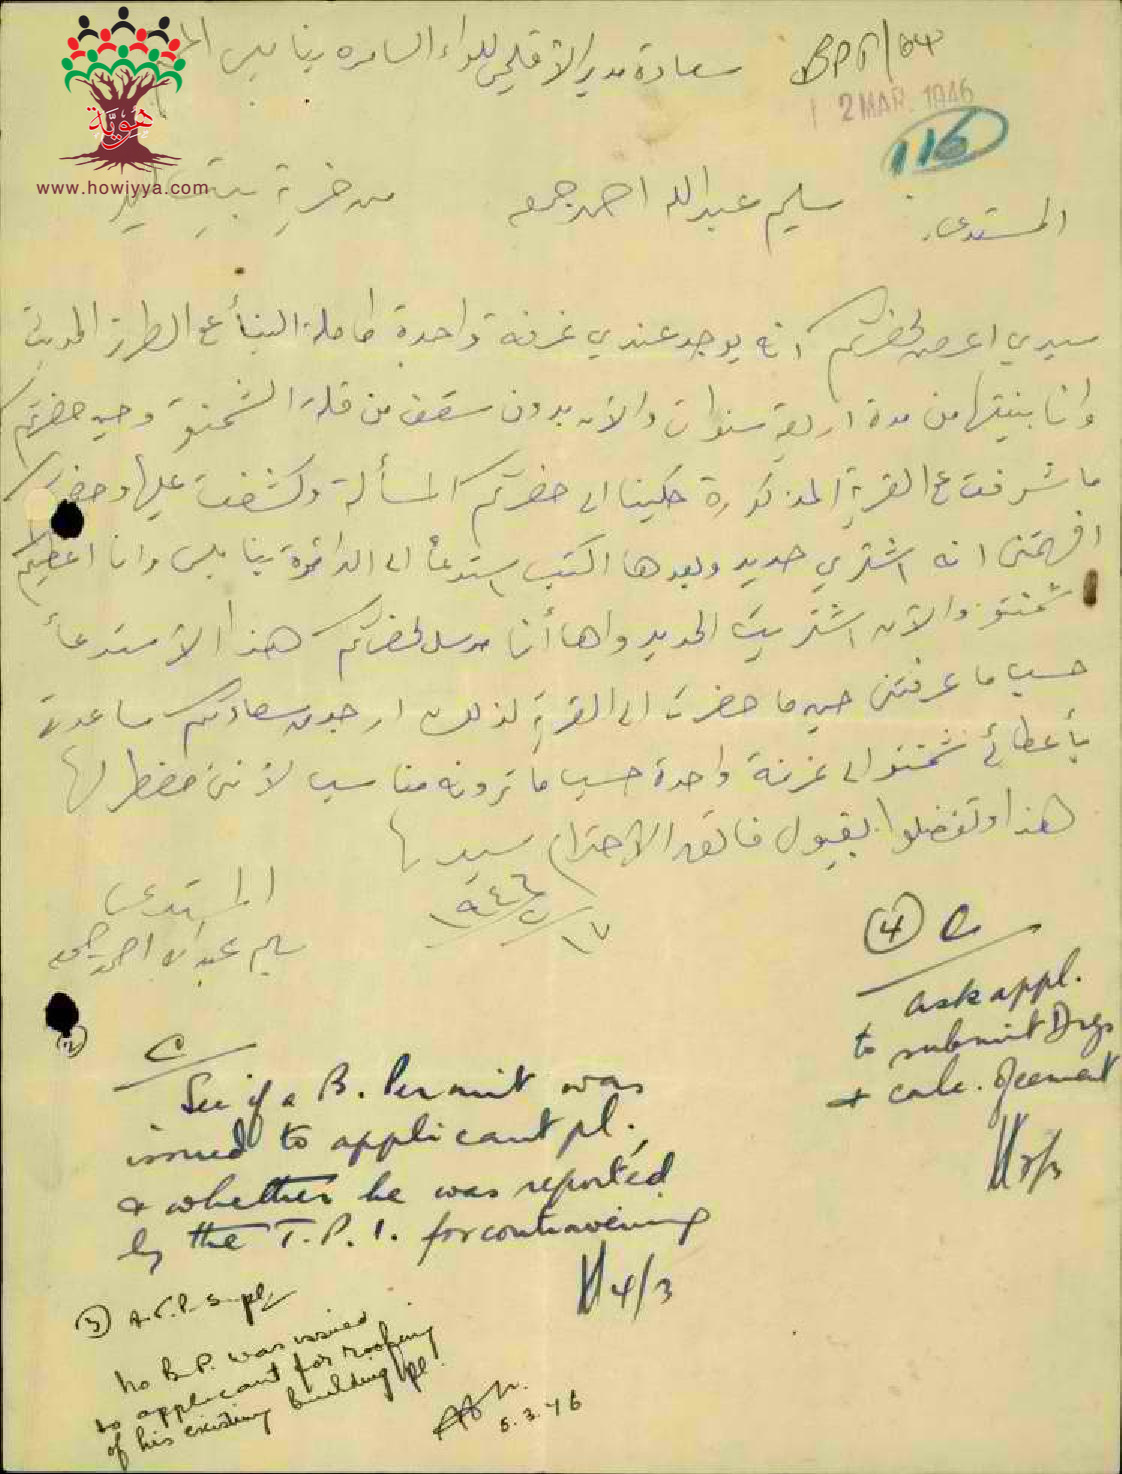 BP5/64
سعادة مدير الاقليمي للواء السامره بنابلس
2 MAR. 1946
116
هويّة
www.howiyya.com
المستدعي: سليم عبدالله احمد جمعه من خربة بيت
سيدي اعرض لحضرتكم انه يوجد عندي غرفة واحدة كاملة البنأ ع الطرز الحديث
وانا بنيتها من مدة اربعة سنوات والآن بدون سقف من قلة الشمنتو وحين حضرتكم
ما شرفت ع القرية المذكورة حكينا الى حضرتكم المسألة وكشفت عليها وحضرتكم
افهمتني انه اشتري حديد وبعدها اكتب استدعأ الى الدائرة بنابلس وانا اعطيكم
شمنتو والآن اشتريت الحديد واها أنا مرسل لحضرتكم هذا الاستدعأ
حسب ما عرفتني حين ما حضرت الى القرية لذلك ارجو من سعادتكم مساعدتي
بأعطائي شمنتو الى غرفة واحدة حسب ما ترونه مناسب لأنني مضطر لها
هذا وتفضلوا بقبول فائق الاحترام سيدي
١٧/٢/١٩٤٦
المستدعي
سليم عبدالله احمد جمعه
(4) C
ask appl.
to submit Drgs
+ calc. of cement
5/3
(2)
C
See if a B. Permit was
issued to applicant pl.
+ whether he was reported
by the T.P.I. for contravening
4/3
(3) A.T.P. S. pl/
No B.P. was issued
to applicant for roofing
of his existing building pl.
5.3.46